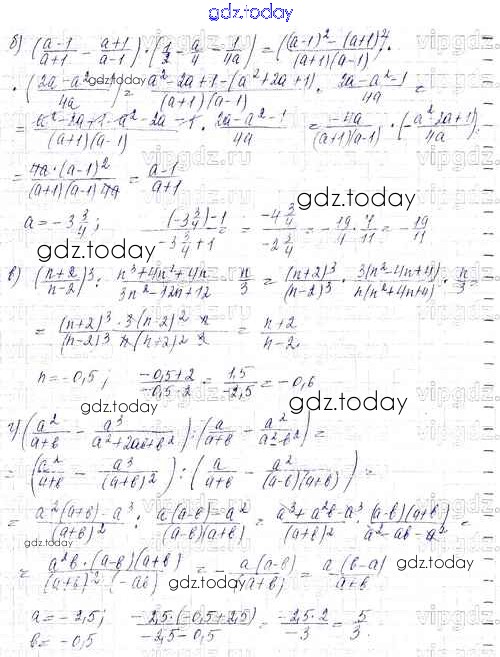 gdz.today
б) ((a-1)/(a+1) - (a+1)/(a-1)) · (1/2 - a/4 - 1/(4a)) = (((a-1)² - (a+1)²)/((a+1)(a-1))) ·
· ((2a - a² - 1)/4a) = (a² - 2a + 1 - (a² + 2a + 1))/((a+1)(a-1)) · (2a - a² - 1)/4a =
= (a² - 2a + 1 - a² - 2a - 1)/((a+1)(a-1)) · (2a - a² - 1)/4a = -4a/((a+1)(a-1)) · (-(a² - 2a + 1)/4a) =
= 4a·(a-1)²/((a+1)(a-1) 4a) = (a-1)/(a+1)
gdz.today
a = -3 3/4; ((-3 3/4) - 1)/(-3 3/4 + 1) = (-4 3/4)/(-2 3/4) = - 19/4 · 4/11 = - 19/11
gdz.today
в) ((n+2)/(n-2))³ : (n³ + 4n² + 4n)/(3n² - 12n + 12) · n/3 = (n+2)³/(n-2)³ · 3(n² - 4n + 4)/(n(n² + 4n + 4)) · n/3 =
= (n+2)³ · 3(n-2)² n/((n-2)³ n(n+2)² 3) = (n+2)/(n-2)
n = -0,5; (-0,5+2)/(-0,5-2) = 1,5/-2,5 = -0,6
gdz.today
gdz.today
г) (a²/(a+в) - a³/(a² + 2aв + в²)) : (a/(a+в) - a²/(a² - в²)) =
= (a²/(a+в) - a³/(a+в)²) : (a/(a+в) - a²/((a-в)(a+в))) =
= (a²(a+в) - a³)/(a+в)² : (a(a-в) - a²)/((a-в)(a+в)) = (a³ + a²в - a³)/(a+в)² · (a-в)(a+в)/(a² - aв - a²) =
gdz.today
= a²в·(a-в)(a+в)/((a+в)²·(-aв)) = - a(a-в)/(a+в) = a(в-a)/(a+в)
gdz.today
gdz.today
a = -2,5; -2,5·(-0,5+2,5)/(-2,5-0,5) = -2,5·2/-3 = 5/3
в = -0,5
gdz.today